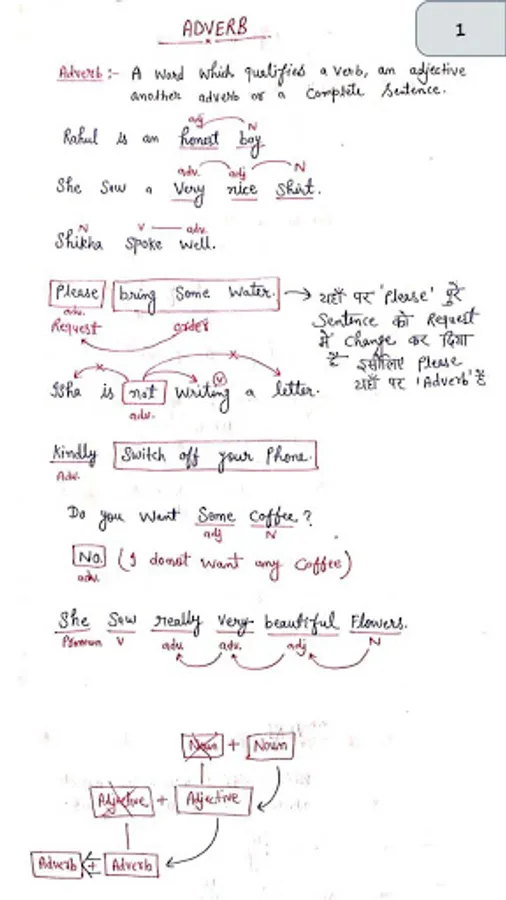 1
ADVERB
Adverb :- A word which qualifies a verb, an adjective
another adverb or a complete sentence.
adj N
Rahul is an honest boy.
adv. adj N
She saw a very nice shirt.
N V adv.
Shikha spoke well.
Please bring some water. → यहाँ पर 'Please' पूरे
adv.
Request order
Sentence को Request
में Change कर दिया
है इसीलिए Please
यहाँ पर 'Adverb' है
x x V
is not writing a letter.
adv.
Kindly Switch off your Phone.
Adv.
Do you want Some Coffee?
adj N
No. (I donot want any Coffee)
adv.
She saw really very beautiful Flowers.
Pronoun V adv. adv. adj N
Noun + Noun
Adjective + Adjective
Adverb + Adverb